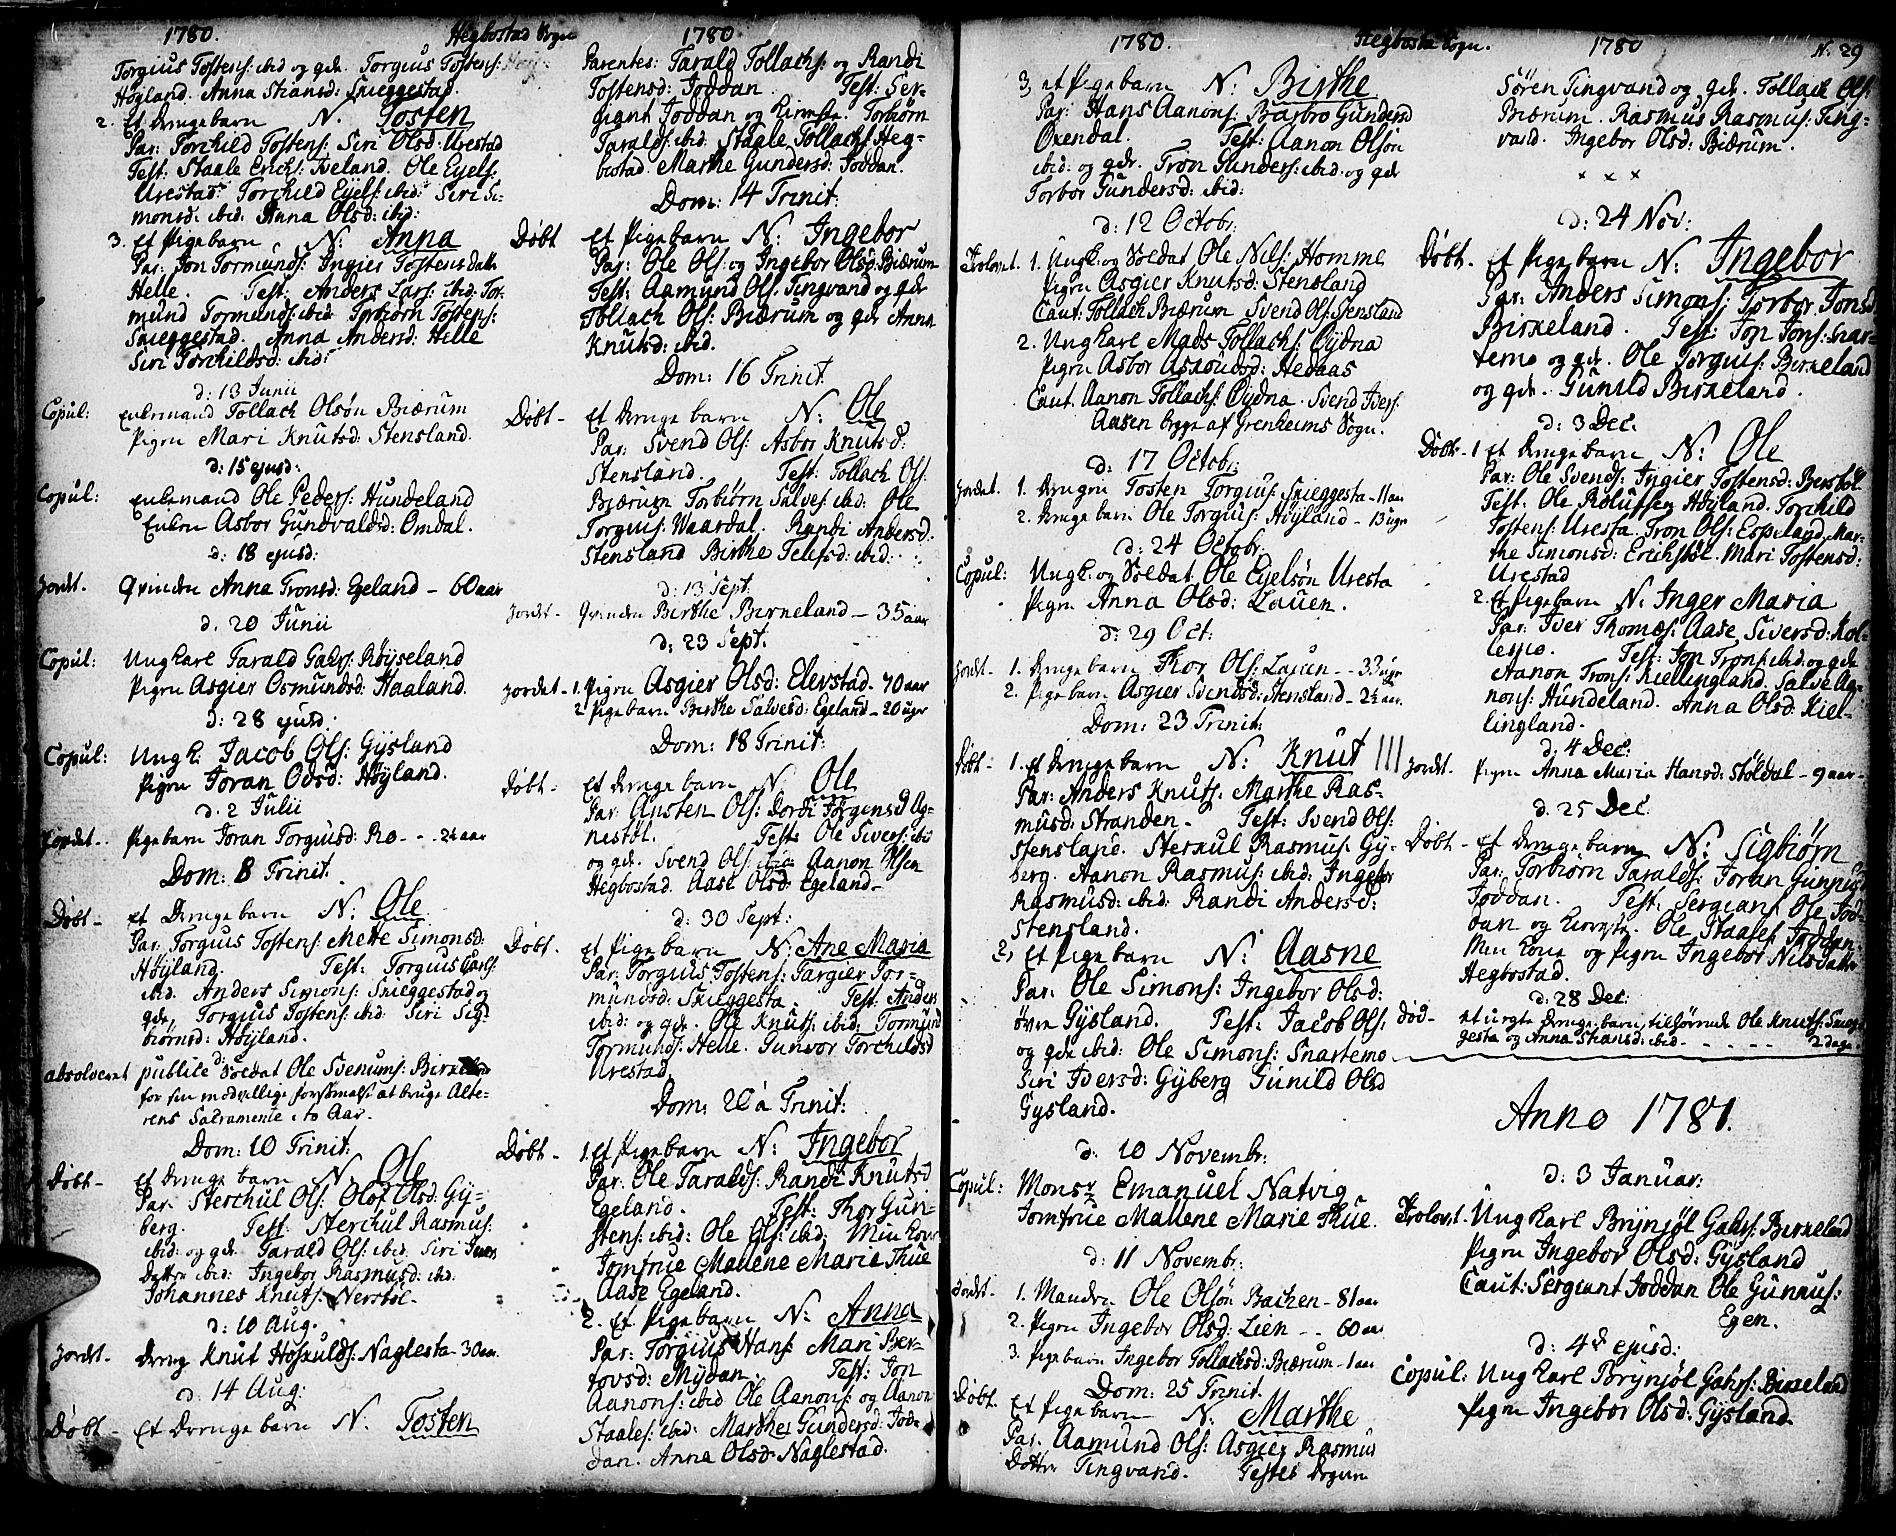 1780. Hegbostad Sogn
Torgius Tostens: ibid og qde. Torgius Tostens:
Høgland. Anna Stiansd: Skieggestad.
2. Et drengebarn N. Tosten
Par: Torchild Tostens: Siri Olsd: Urestad
Test: Staale Erichs: Tveland. Ole Eyels:
Urestad. Torchild Eyels: ibid: Siri Si-
monsd: ibid. Anna Olsd: ibid:
3. Et Pigebarn N: Anna
Par: Jon Tormunds: Ingier Tostens datter
Helle. Test: Anders Lars: ibid: Tor-
mund Tormunds: ibid. Torbiörn Tostens:
Skieggestad. Anna Andersd: Helle
Siri Torchildsd: ibid:
d: 13 Junii
Copul: Enkemand Tollach Olsøn Biærum
Pigen Mari Knutsd: Stensland.
d: 15 ejusd:
Copul: Enkemand Ole Peders: Hundeland
Enken Asbor Gundvaldsd: Omdal.
d: 18 ejusd:
Jordt. Qvinden Anna Tronsd: Egeland - 60 aar
d. 20 Junii
Copul: Ungkarl Tarald Gahrs: Röyseland
Pigen Asgier Osmundsd: Haaland.
d: 28 ejusd:
Copul: Ungk. Jacob Ols: Gysland
Pigen Joran Odsd: Höyland.
d. 2 Julii
Jordet- Pigebarn Joran Torgiusd: Ro - - 2½ aar
Dom: 8 Trinit.
Döbt- et Drengebarn N: Ole
Par. Torgius Tostens: Mette Simonsd:
Höyland. Test: Torgius Carls:
ibid. Anders Simons: Skieggestad og
qde, Torgius Tostens: ibid: Siri Sig-
biörnsd: Höyland.
d:
absolveret publice Soldat Ole Svenums: Birkeland
for sin modvillige forsömmelse at bruge Alte-
rens Sacramente i to Aar.
Dom: 10 Trinit:
Döbt- et Drengebarn N. Ole
Par. Sterchul Ols: Olof Olsd: Gy-
berg. Test: Sterchul Rasmus:
ibid: og qde. Tarald Ols: ibid: Siri Ivers
Datter ibid: Ingebor Rasmusd: ibd.
Johannes Knuts: Nerstöl.
d: 10 Aug.
Jordt- Dreng Knut Höskulds: Naglesta - 30 aar.
d: 14 Aug:
Döbt- Et Drengebarn N. Tosten
1780
Parentes: Tarald Tollachs: og Randi
Tostensd: Joddan. Test: Ser-
giant Joddan og Kierreste. Torbiörn
Taralds: ibid: Staale Tollachs: Heg-
bostad. Marthe Gundersd: Joddan.
Dom: 14 Trinit:
Döbt Et Pigebarn N: Ingebor
Par: Ole Ols: og Ingebor Olsd: Biærum
Test: Aamund Ols. Tingvand og qde
Tollach Ols: Biærum og qde Anna
Knutsd: ibid.
Dom: 16 Trinit.
Döbt- Et drengebarn N: Ole
Par: Svend Ols: Asbor Knutsd:
Stensland. Test: Tollach Ols:
Biærum Torbiörn Salves: ibid: Ole
Torguis: Waardal. Randi Andersd:
Stensland Birthe Telefsd: ibid:
d: 13 Sept.
Jordt- Qvinden Birthe Birkeland - 35 aar
d: 23 Sept.
Jordet- 1. Pigen Asgier Olsd: Elevstad - 70 aar
2 Pigebarn Birthe Salvesd: Egeland - 20 uger
Dom: 18 Trinit:
Döbt- Et drengebarn N: Ole
Par: Austen Ols: Dordi Jörgensd Ag-
nestöl. Test: Ole Sivers: ibid
og qde. Svend Ols: ibid: Aanon Olsen
Hegbostad. Aase Olsd: Egeland-
d: 30 Sept:
Döbt. et Pigebarn N: Ane Maria
Par: Torgius Tostens: Targier Tor-
mundsd: Skieggesta. Test: Anders
ibid: og qde. Ole Knuts: ibid: Tormund
Tormunds: Helle. Gunvor Torchildsd
Urestad.
Dom: 20 a Trinit:
Döbt- 1. Et Pigebarn N: Ingebor
Par. Ole Taralds: Randi Knutsd
Egeland. Test: Thor Gun-
stens: ibid: Ole Ols: ibid: Min Kone
Jomfrue Mallene Maria Thue
Aase Egeland.
2. Et Pigebarn N: Anna
Par: Torgius Hans: Mari Ber-
tovsd: Mydan. Test: Jon
Aanons: ibid Ole Aanons: og Aanon
Staales: ibid: Marthe Gundersd: Jod-
dan. Anna Olsd: Naglestad.
1780. Hegbosta Sogn.
3, et Pigebarn N: Birthe
Par: Hans Aanons: Barbro Gundersd
Oxendal. Test: Aanon Olsön
ibid. og qde. Tron Gunders: ibid. og qde
Torbor Gundersd: ibid:
d: 12 Octobr:
Trolovet. 1. Ungk. og Soldat Ole Nils: Homme
Pigen Asgier Knutsd: Stensland
Caut: Tollach Biærum Svend Ols: Stensland
2. Ungkarl Mads Tollachs: Oydna
Pigen Asbor Aslousd: Hedaas
Caut. Aanon Tollachs: Oydna. Svend Ivers:
Aasen begge af Grenheims Sogn.
d: 17 Octobr:
Jordet. 1. Drengen Tosten Torgius: Skieggesta - 11 aar
2. Drengebarn Ole Torgius: Höyland - 13 uger
d: 24 Octobr.
Copul: Ungk. og Soldat Ole Eyelsön Uresta
Pigen Anna Olsd: Lauen.
d: 29 Oct:
Jordt- 1. Drengebarn Thor Ols: Lauen - - 33 uger
2. Pigebarn Asgier Svendsd: Stensland - 2½ aar.
Dom: 23 Trinit:
Döbt- 1. et Drengebarn N: Knut
Par: Anders Knuts. Marthe Ras-
musd: Stranden. Test: Svend Ols:
Stensland. Sterkul Rasmus: Gy-
berg. Aanon Rasmus: ibid: Ingebor
Rasmusd: ibid: Randi Andersd:
Stensland.
2, Et Pigebarn N: Aasne
Par: Ole Simons: Ingebor Olsd:
övre Gysland. Test: Jacob Ols:
og qde ibid: Ole Simons: Snartemo
Siri Iversd: Gyberg Gunild Olsd
Gysland.
d: 10 Novembr:
Copul: Monsr Emanuel Natvig
Jomfrue Mallene Marie Thue.
d: 11 Novembr:
Jordt- 1. Manden Ole Olsön Bachen - 81 aar
2. Pigen Ingebor Olsd: Lien - - 60 aar
3. Pigebarn Ingebor Tollachsd: Biærum - 1 aar
Dom: 25 Trinit.
Döbt. Et Pigebarn N: Marthe
Par. Aamund Ols: Asgier Rasmus
Datter Tingvand. Testes Sogner
1780 N. 29
Sören Tingvand og qde. Tollach Ols:
Biærum. Rasmus Rasmus: Ting-
vand. Ingebor Olsd: Biærum.
× × ×
d: 24 Nov:
Döbt- et Pigebarn N: Ingebor
Par: Anders Simons: Torbor Jonsd
Birkeland. Test: Jon Jons: Snar-
temo og qde. Ole Torguis: Birkeland
og qde. Gunild Birkeland.
d: 3 Dec.
Döbt- 1 Et Drengebarn N: Ole
Par: Ole Svends: Ingier Tostensd: Berstöl.
Test: Ole Rolufsen Höyland. Torchild
Tostens: Uresta. Tron Ols: Espeland. Mar-
the Simonsd: Erichstöl. Mari Tostensd:
Urestad
2. Et Pigebarn N: Inger Maria
Par: Iver Thomæs: Aase Siversd: Kol-
lesmo. Test: Jon Trons: ibid: og qde
Aanon Trons: Kiellingland. Salve Ag-
nons: Hundeland. Anna Olsd: Kiel-
lingland.
d: 4 Dec:
Jordt. Pigen Anna Maria Hansd: Stöldal - 9 aar-
d. 25 Dec.
Döbt- Et Drengebarn N: Sigbiørn
Par: Torbiörn Taralds: Joran Gunnusd
Joddan. Test: Sergiant Ole Jod-
dan og Kierreste. Ole Staales: Joddan.
Min Kone og Pigen Ingebor Nilsdatter
Hegbostad.
d: 28 Dec:
död- et uegte Drengebarn tilhörende Ole Knuts: Skieg-
gesta og Anna Stiansd: ibid - - - - - 2 dage
Anno 1781.
d: 3 Januar:
Trolovet- Ungkarl Brynjøl Gahrs: Birkeland
Pigen Ingebor Olsd: Gysland
Caut: Sergiant Joddan Ole Gunnus:
Egen.
d: 4de ejusd:
Copul: Ungkarl Brynjøl Gahrs: Birkeland
Pigen Ingebor Olsd: Gysland.